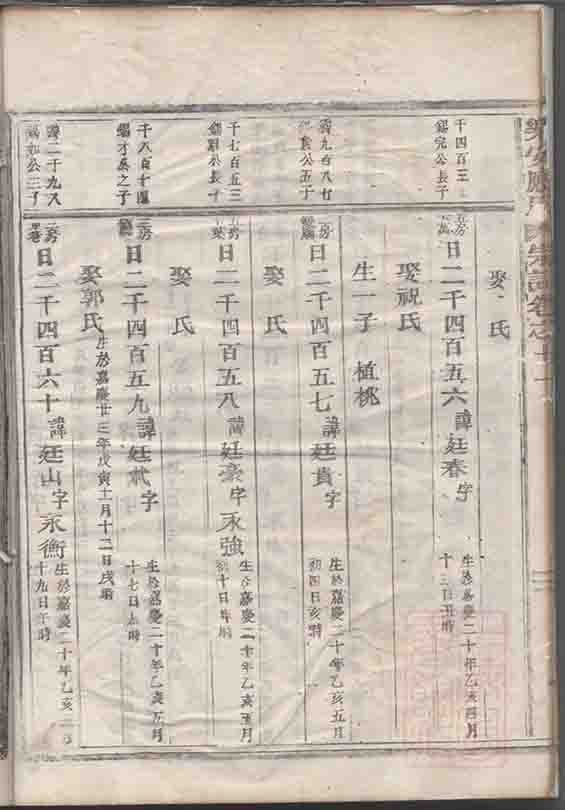 娶 氏
千四百三
錫完公長子
五房
日二千四百五六 諱廷春 字
生於嘉慶二十年乙亥四月
十三日丑時
娶祝氏
生一子 植桃
公五子
日二千四百五七 諱廷貴 字
生於嘉慶二十年乙亥五月
初四日亥時
娶 氏
千七百五三
公長子
五房
日二千四百五八 諱廷豪 字永強
生於嘉慶二十年乙亥五月
初十日 時
娶 氏
千八百十四
錫才公之子
三房
日二千四百五九 諱廷 字
生於嘉慶二十年乙亥五月
十七日 時
娶郭氏 生於嘉慶廿三年戊寅十一月十二日戌時
二千九八
公三子
房
日二千四百六十 諱廷山 字永衡
生於嘉慶二十年乙亥 月
十九日午時